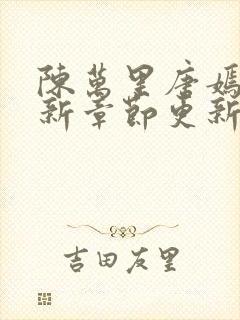 陳萬里唐嫣
新章節更新
吉田友里